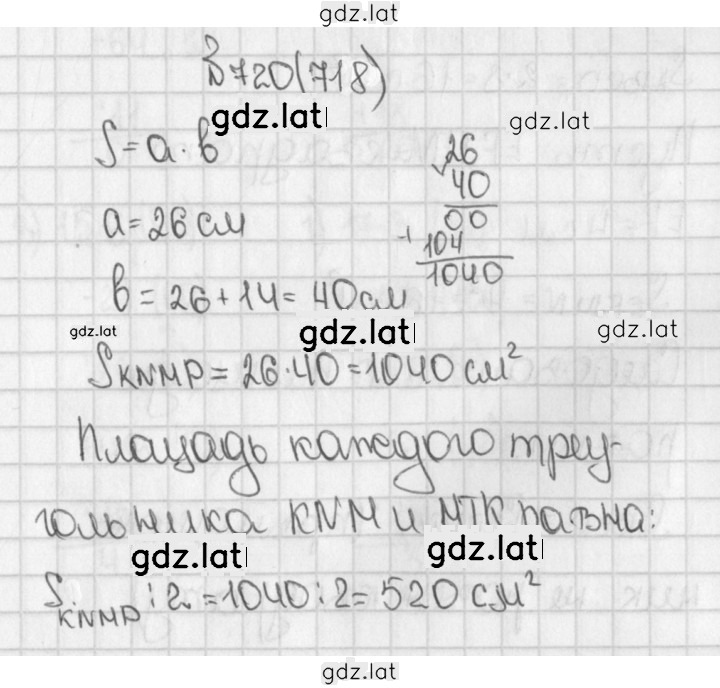 gdz.lat
№720(718)
gdz.lat gdz.lat
S=a·b
a=26 см
26
40
00
+ 104
1040
b=26+14=40см
gdz.lat gdz.lat gdz.lat
S KNMP=26·40=1040 см²
Площадь каждого треу-
гольника KNM и MTK равна:
gdz.lat gdz.lat
S KNMP:2=1040:2=520 см²
gdz.lat